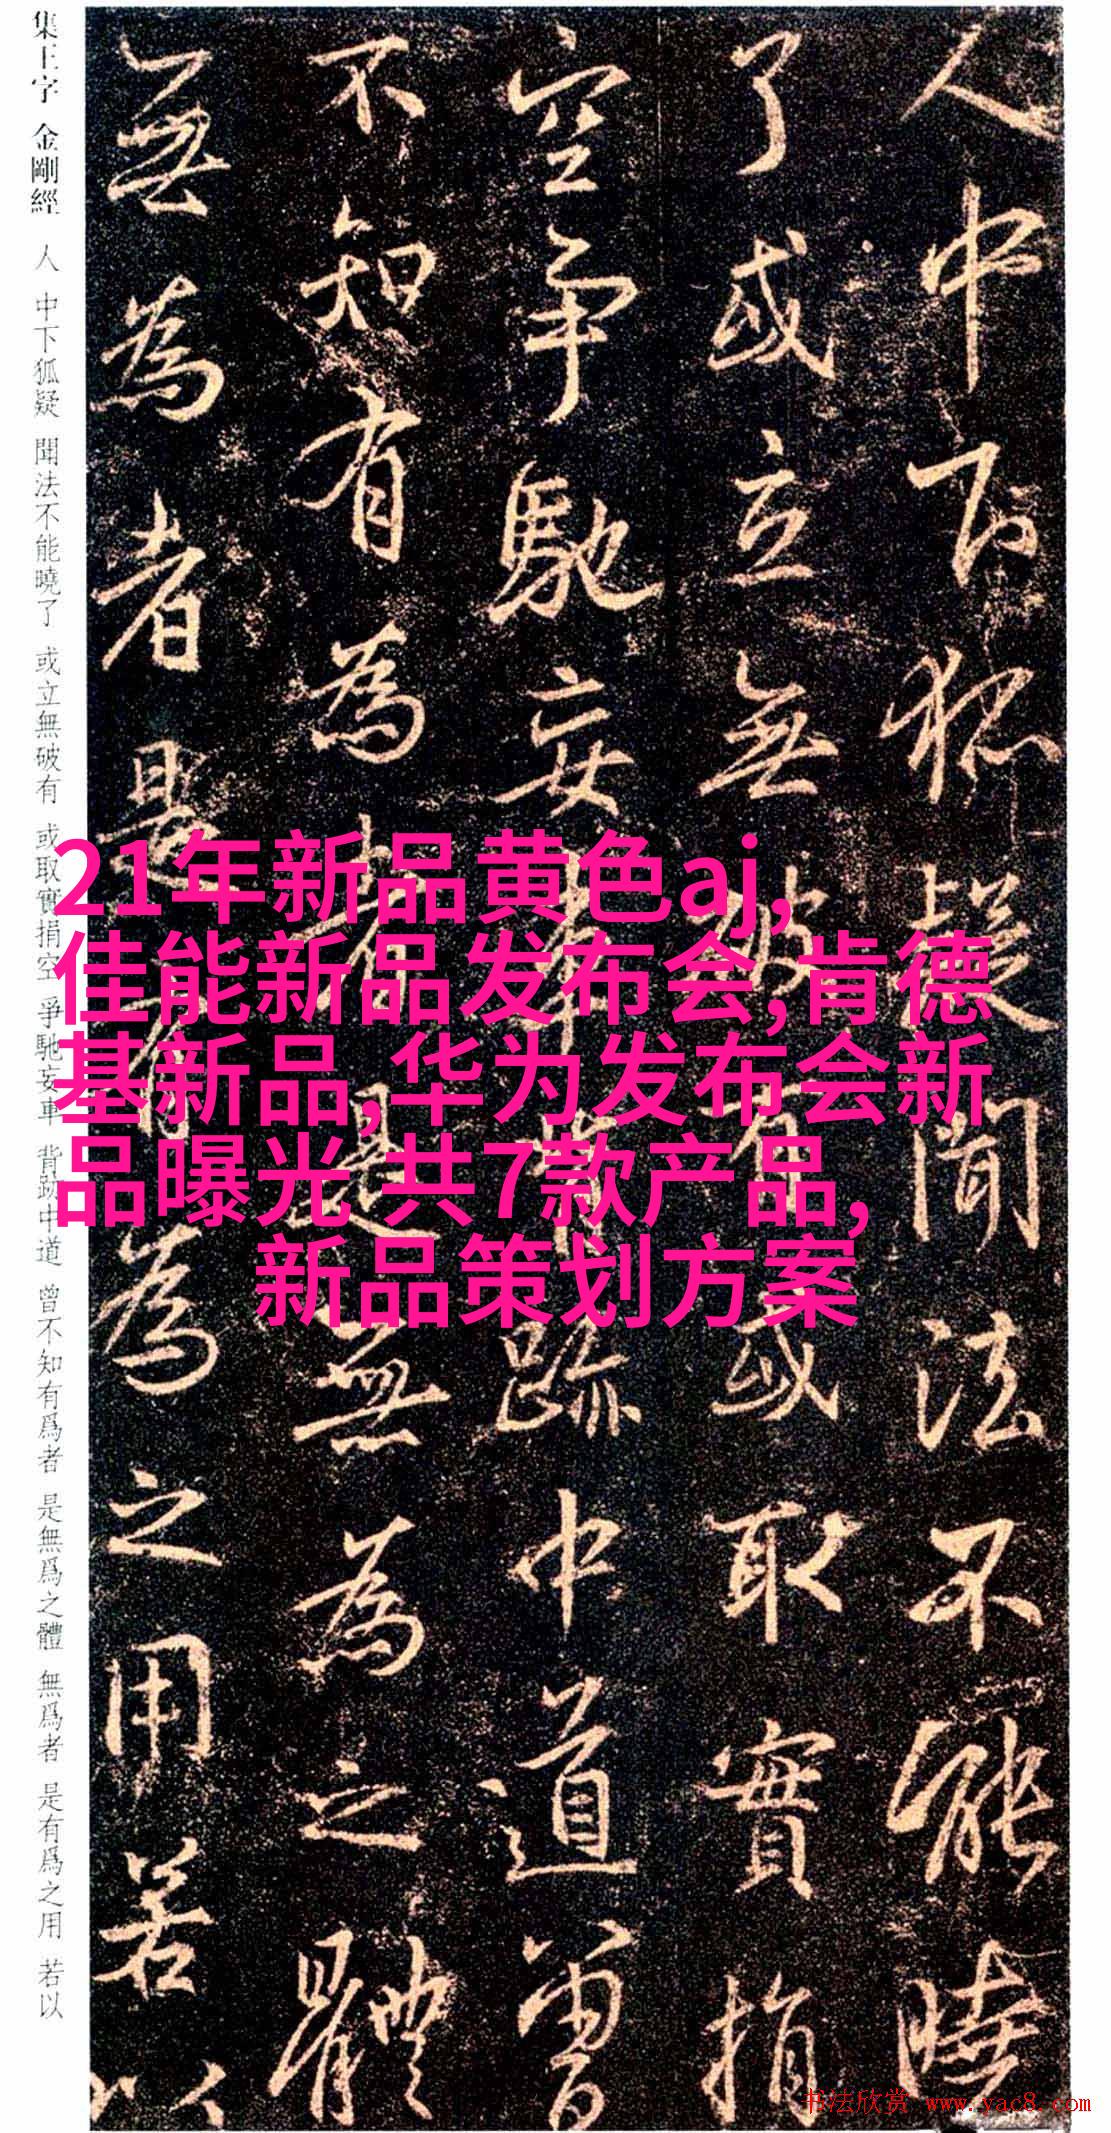 集王字 金剛經 人 中下狐疑 聞法不能曉了 或立無破有 或取實捐空 爭馳妄車 背跡中道 曾不知有爲者 是無爲之體 無爲者 是有爲之用 若以
人中下狐疑聞法不能曉
了或立無破有或取實捐
空爭馳妄車背跡中道曾
不知有為者是無為之體
無為者是有為之用若以
21年新品黄色aj,
佳能新品发布会,肯德
基新品,华为发布会新
品曝光 共7款产品,
新品策划方案
书法欣赏 www.yac8.com